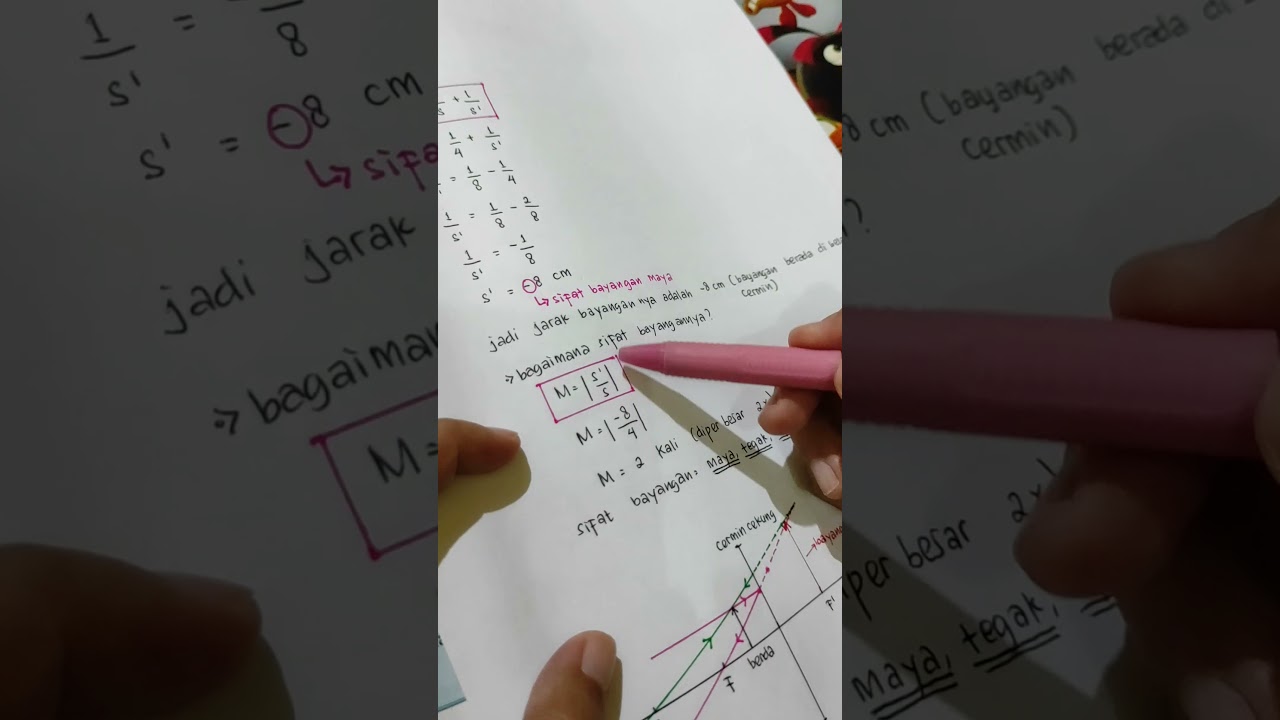 1/s + 1/s'
1/4 + 1/s'
= 1/8 - 1/4
1/s' = 1/8 - 2/8
1/s' = -1/8
s' = -8 cm
↳ sifat bayangan maya
jadi jarak bayangan nya adalah -8 cm (bayangan berada di
cermin)
bagaimana sifat bayangannya?
M = |s'/s|
M = |-8/4|
M = 2 kali (diper besar 2x)
sifat bayangan = maya, tegak,
cermin cekung
benda
F
F'